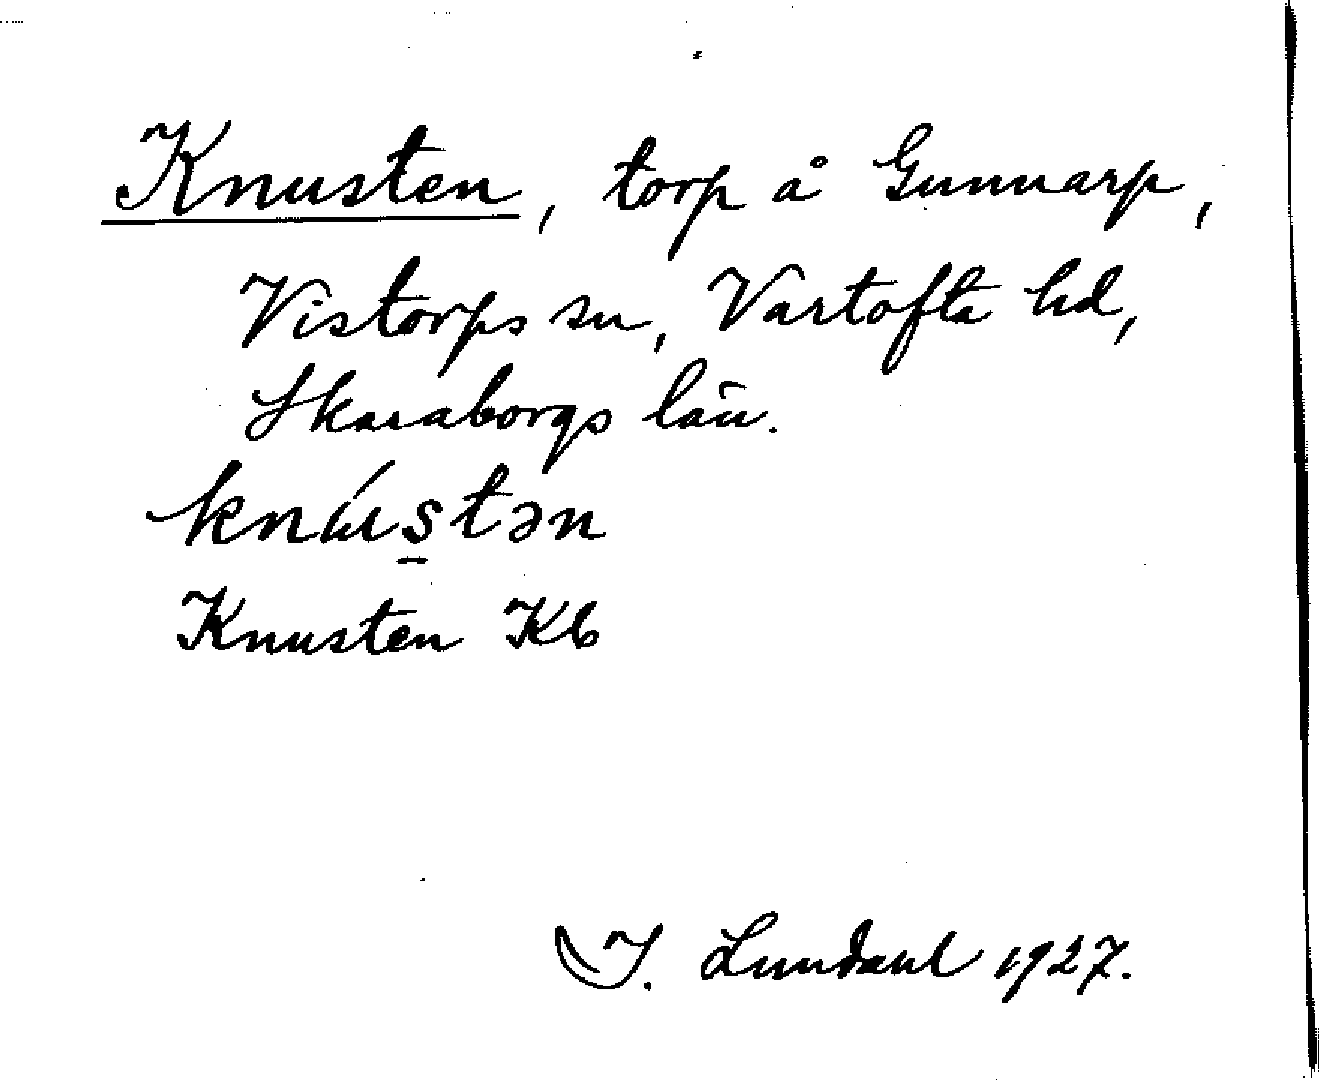 Knusten, torp å Gunnarp,
Vistorps sn, Vartofta hd,
Skaraborgs län.
knústən
Knusten Kb
I. Lundahl 1927.